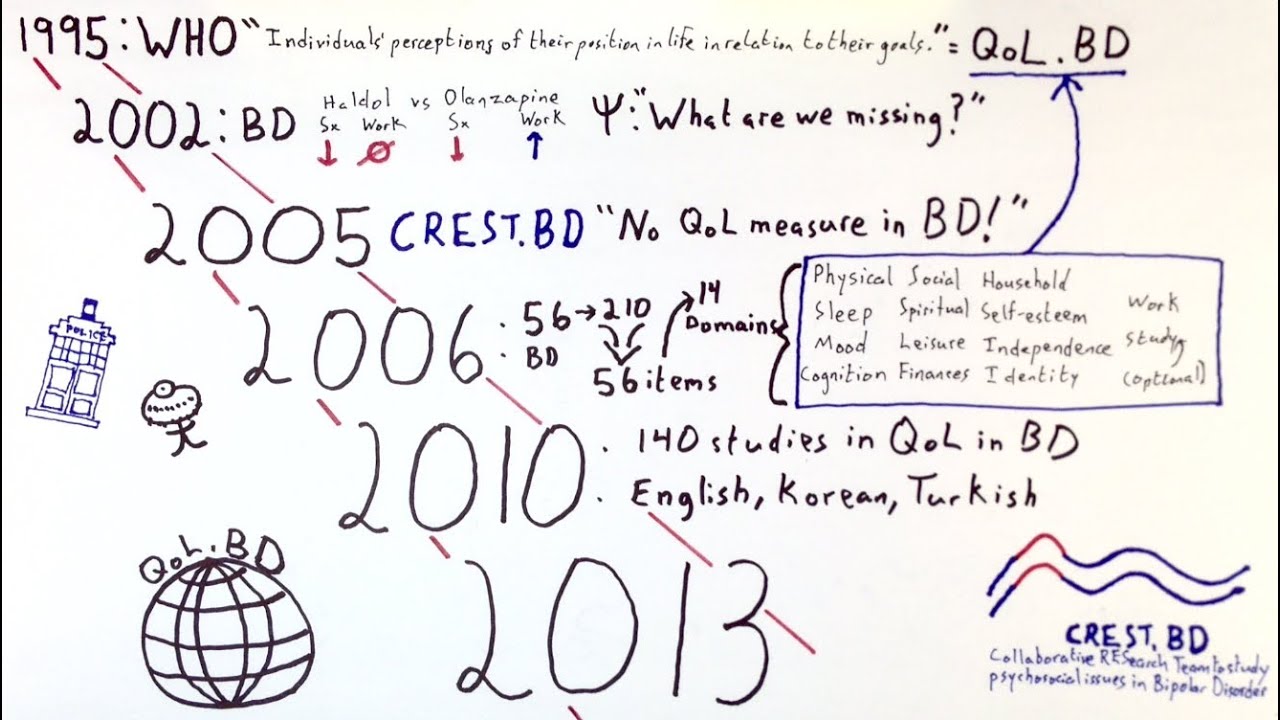 1995: WHO "Individuals' perceptions of their position in life in relation to their goals." = QoL.BD
2002: BD Haldol vs Olanzapine Ψ: "What are we missing?"
Sx Work Sx Work
↓ ∅ ↓ ↑
2005 CREST.BD "No QoL measure in BD!"
2006 : 56 → 210 14
: BD Domains
56 items
Physical Social Household
Sleep Spiritual Self-esteem Work
Mood Leisure Independence Study
Cognition Finances Identity (optional)
POLICE
2010 . 140 studies in QoL in BD
. English, Korean, Turkish
QoL.BD
2013
CREST.BD
Collaborative RESearch Team to study
psychosocial issues in Bipolar Disorder